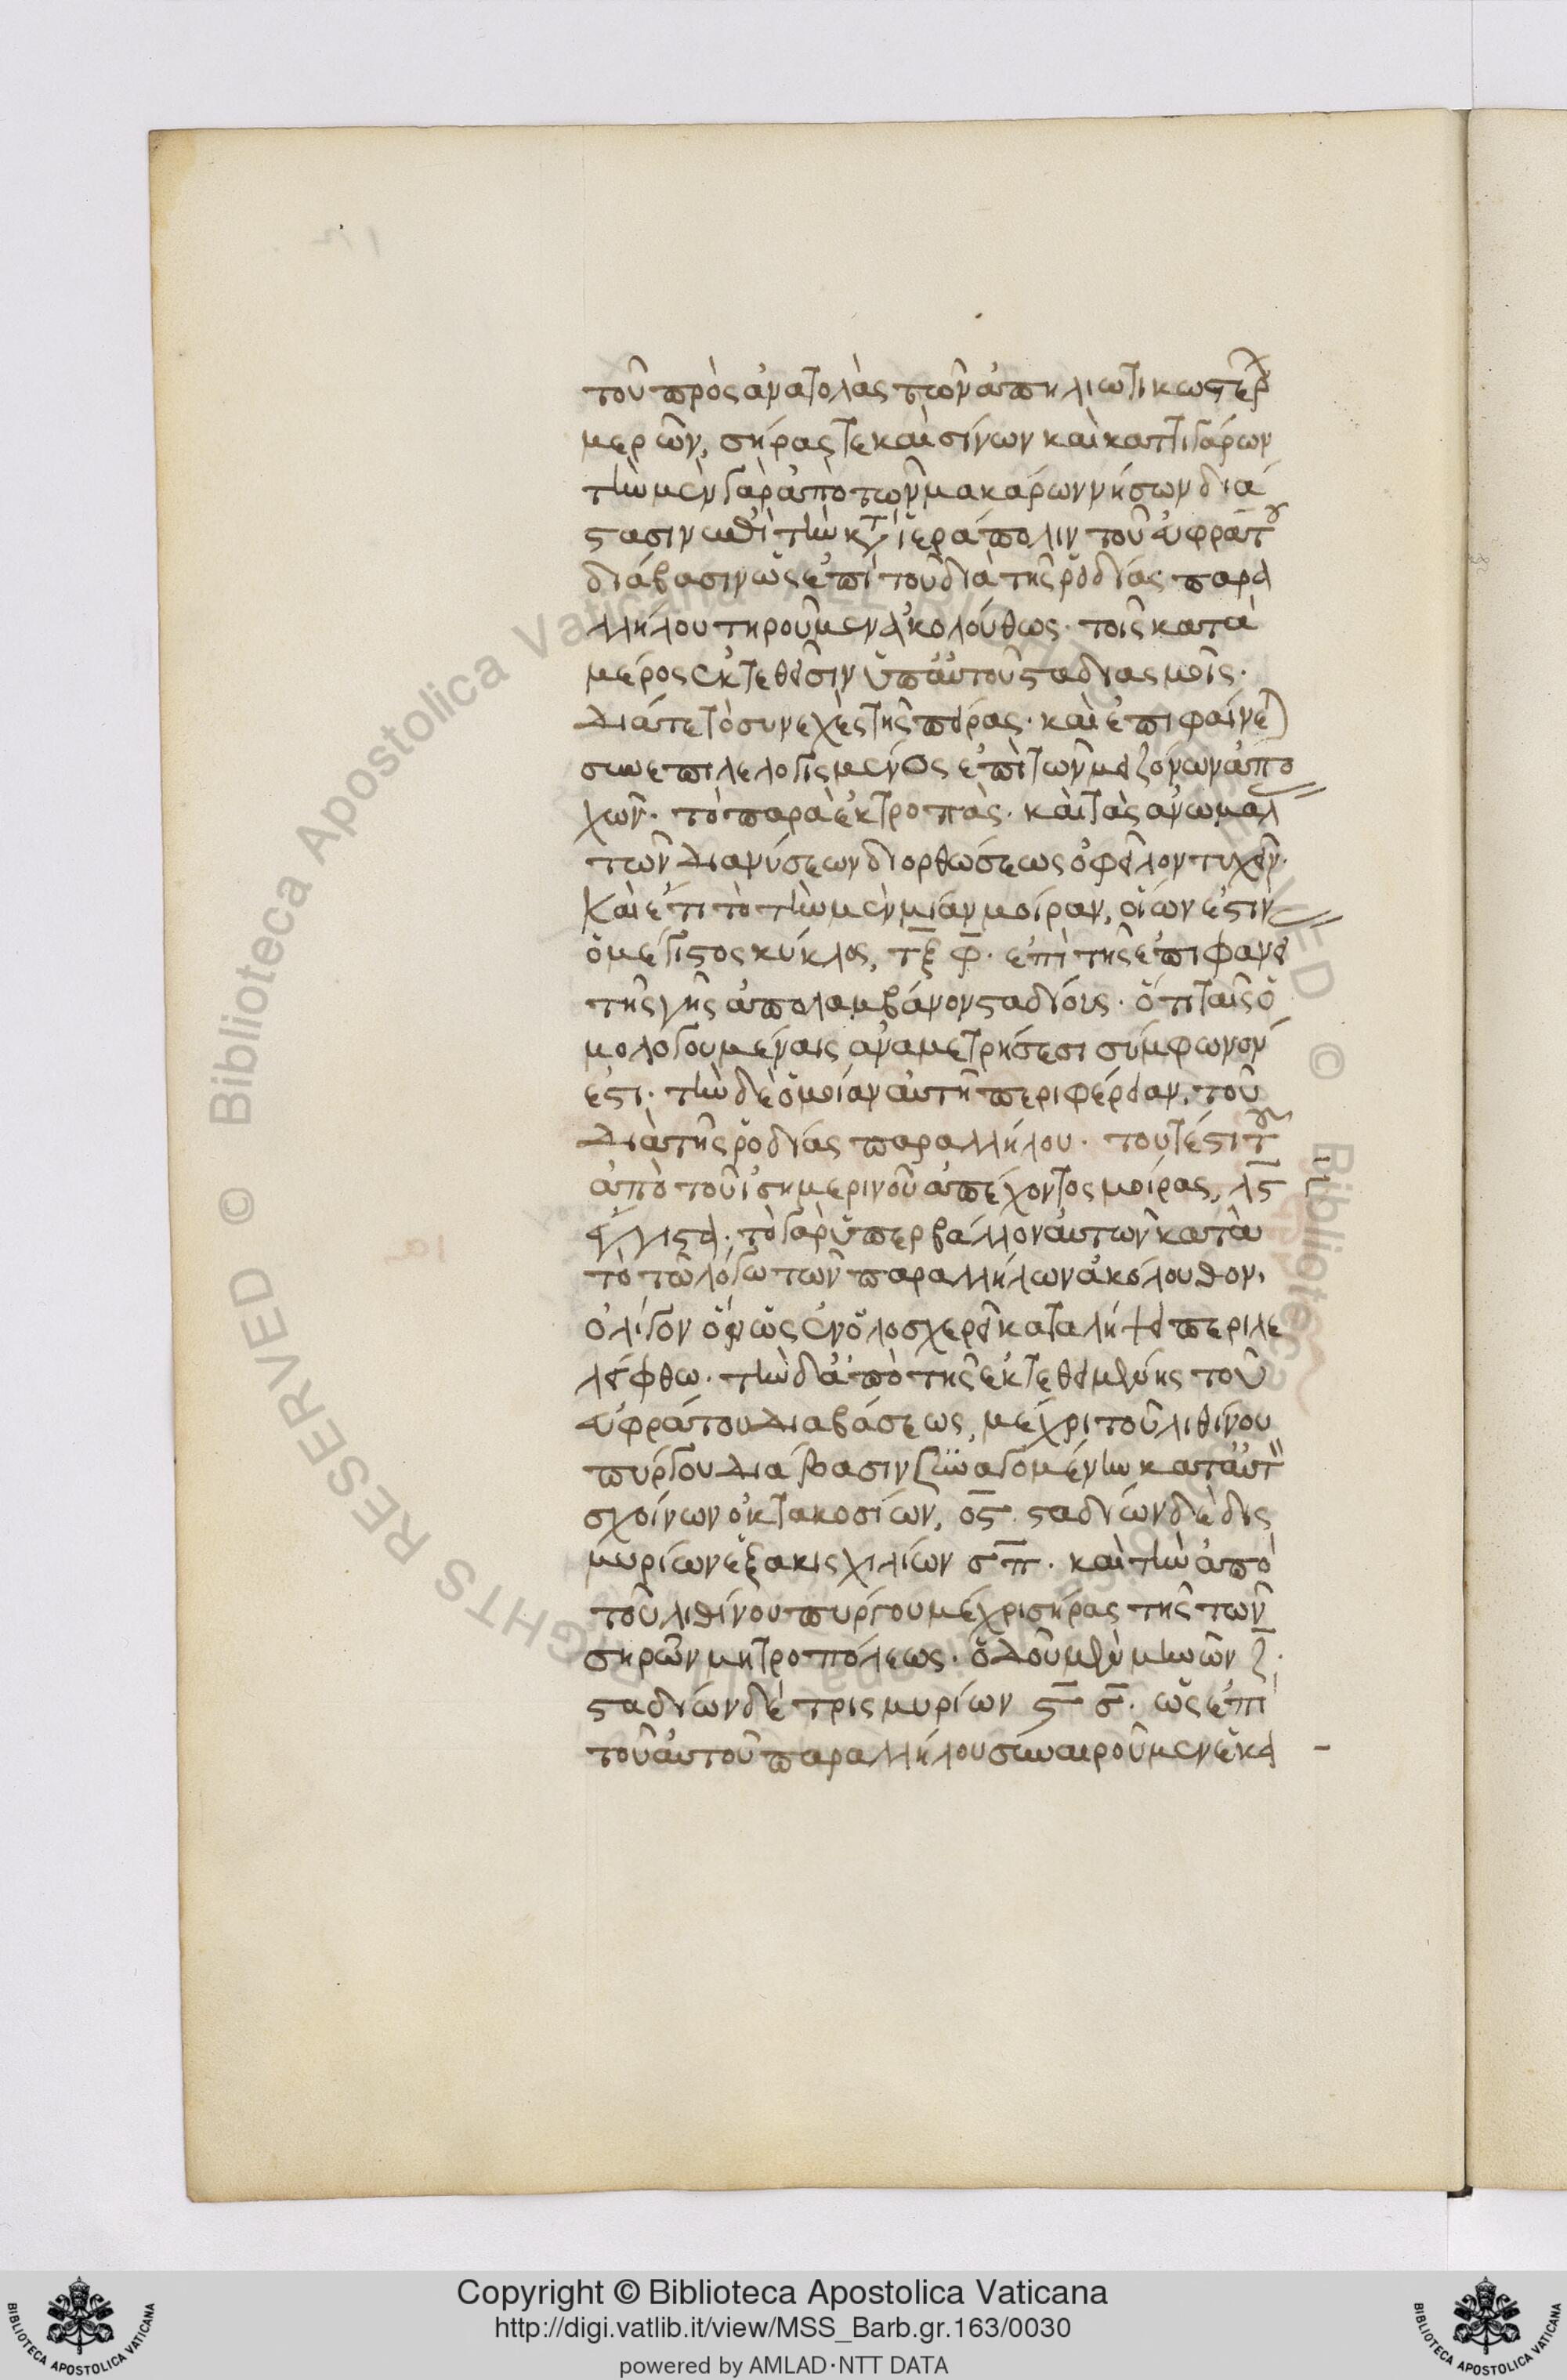 τοῦ πρὸς ἀνατολὰς τῶν ἀπηλιωτικωτερ
μερῶν, σήρας τε καὶ σίνων καὶ καττιγάρων
τὴν μὲν γὰρ ἀπὸ τῶν μακάρων νήσων διά
στασιν ἐπὶ τὴν κτ ἱερὰ πολιν τοῦ εὐφράτου
διάβασιν ὡς ἐπὶ τοῦ διὰ τῆς ῥοδίας παρα
λλήλου τηροῦμεν ἀκολούθως· τοῖς κατὰ
μέρος ἐκτεθεῖσιν ὑπ' αὐτοῦ σταδιασμοῖς·
Διά τε τὸ συνεχὲς τῆς πείρας· καὶ ἐπιφαίνε
συνεπιλελογισμένος ἐπὶ τῶν μειζόνων ἀπο
χῶν· τὸ παρὰ ἐκτροπὰς· καὶ τὰς ἀνωμαλ
τῶν διανύσεων διορθώσεως ὀφεῖλον τυχεῖν·
Καὶ ἔτι τὸ τὴν μὲν μίαν μοίραν, οἵων ἐστιν
ὁ μέγιστος κύκλος, τξ φ· ἐπὶ τῆς ἐπιφανεί
τῆς γῆς ἀπολαμβάνον σταδίους· ὅτι ταῖς ὁ
μολογουμέναις ἀναμετρήσεσι σύμφωνόν
ἐστι· τὴν δὲ ὁμοίαν αὐτῇ περιφέρειαν, τοῦ
Διὰ τῆς ῥοδίας παραλλήλου· τουτέστι τοῦ
ἀπὸ τοῦ ἰσημερινοῦ ἀπέχοντος μοίρας, λς
ἔγγιστα· τὸ γὰρ ὑπερβάλλον αὐτῶν κατὰ
τὸ τῷ λόγῳ τῶν παραλλήλων ἀκόλουθον,
ὀλίγον ὂν ὡς ἐν ὁλοσχερεῖ καταλήψει περιλε
λείφθω· τὴν δ' ἀπὸ τῆς ἐκτεθειμένης τοῦ
εὐφράτου διαβάσεως, μέχρι τοῦ λιθίνου
πύργου διάβασιν συναγομένην κατ' αὐτ
σχοίνων ὀκτακοσίων, ος· σταδίων δὲ δις
μυρίων ἑξακισχιλίων σπ· καὶ τὴν ἀπὸ
τοῦ λιθίνου πύργου μέχρι σήρας τῆς τῶν
σηρῶν μητροπόλεως· ὁδοῦ μὲν μηνῶν ζ·
σταδίων δὲ τρισμυρίων ς σ· ὡς ἐπὶ
τοῦ αὐτοῦ παραλλήλου συναιροῦμεν ἑκα
Copyright © Biblioteca Apostolica Vaticana
http://digi.vatlib.it/view/MSS_Barb.gr.163/0030
powered by AMLAD·NTT DATA